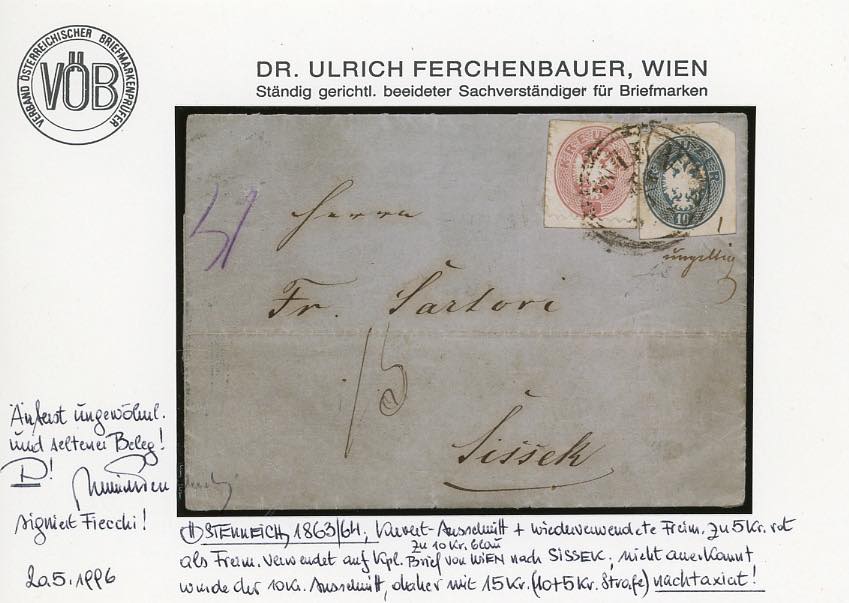 VERBAND ÖSTERREICHISCHER BRIEFMARKENPRÜFER
VÖB
DR. ULRICH FERCHENBAUER, WIEN
Ständig gerichtl. beeideter Sachverständiger für Briefmarken
KREUZER
KREUZER
10
ungültig
Herrn
Fr. Sartori
15
Sissek
Äußerst ungewöhnl.
und seltener Beleg!
signiert Fiecchi!
20.5.1996
ÖSTERREICH, 1863/64, Kuvert-Ausschnitt + wiederverwendete Freim. zu 5 Kr. rot
zu 10 Kr. blau
als Freim. verwendet auf kpl. Brief von WIEN nach SISSEK, nicht anerkannt
wurde der 10 Kr. Ausschnitt, daher mit 15 Kr. (10+5 Kr. Strafe) nachtaxiert!